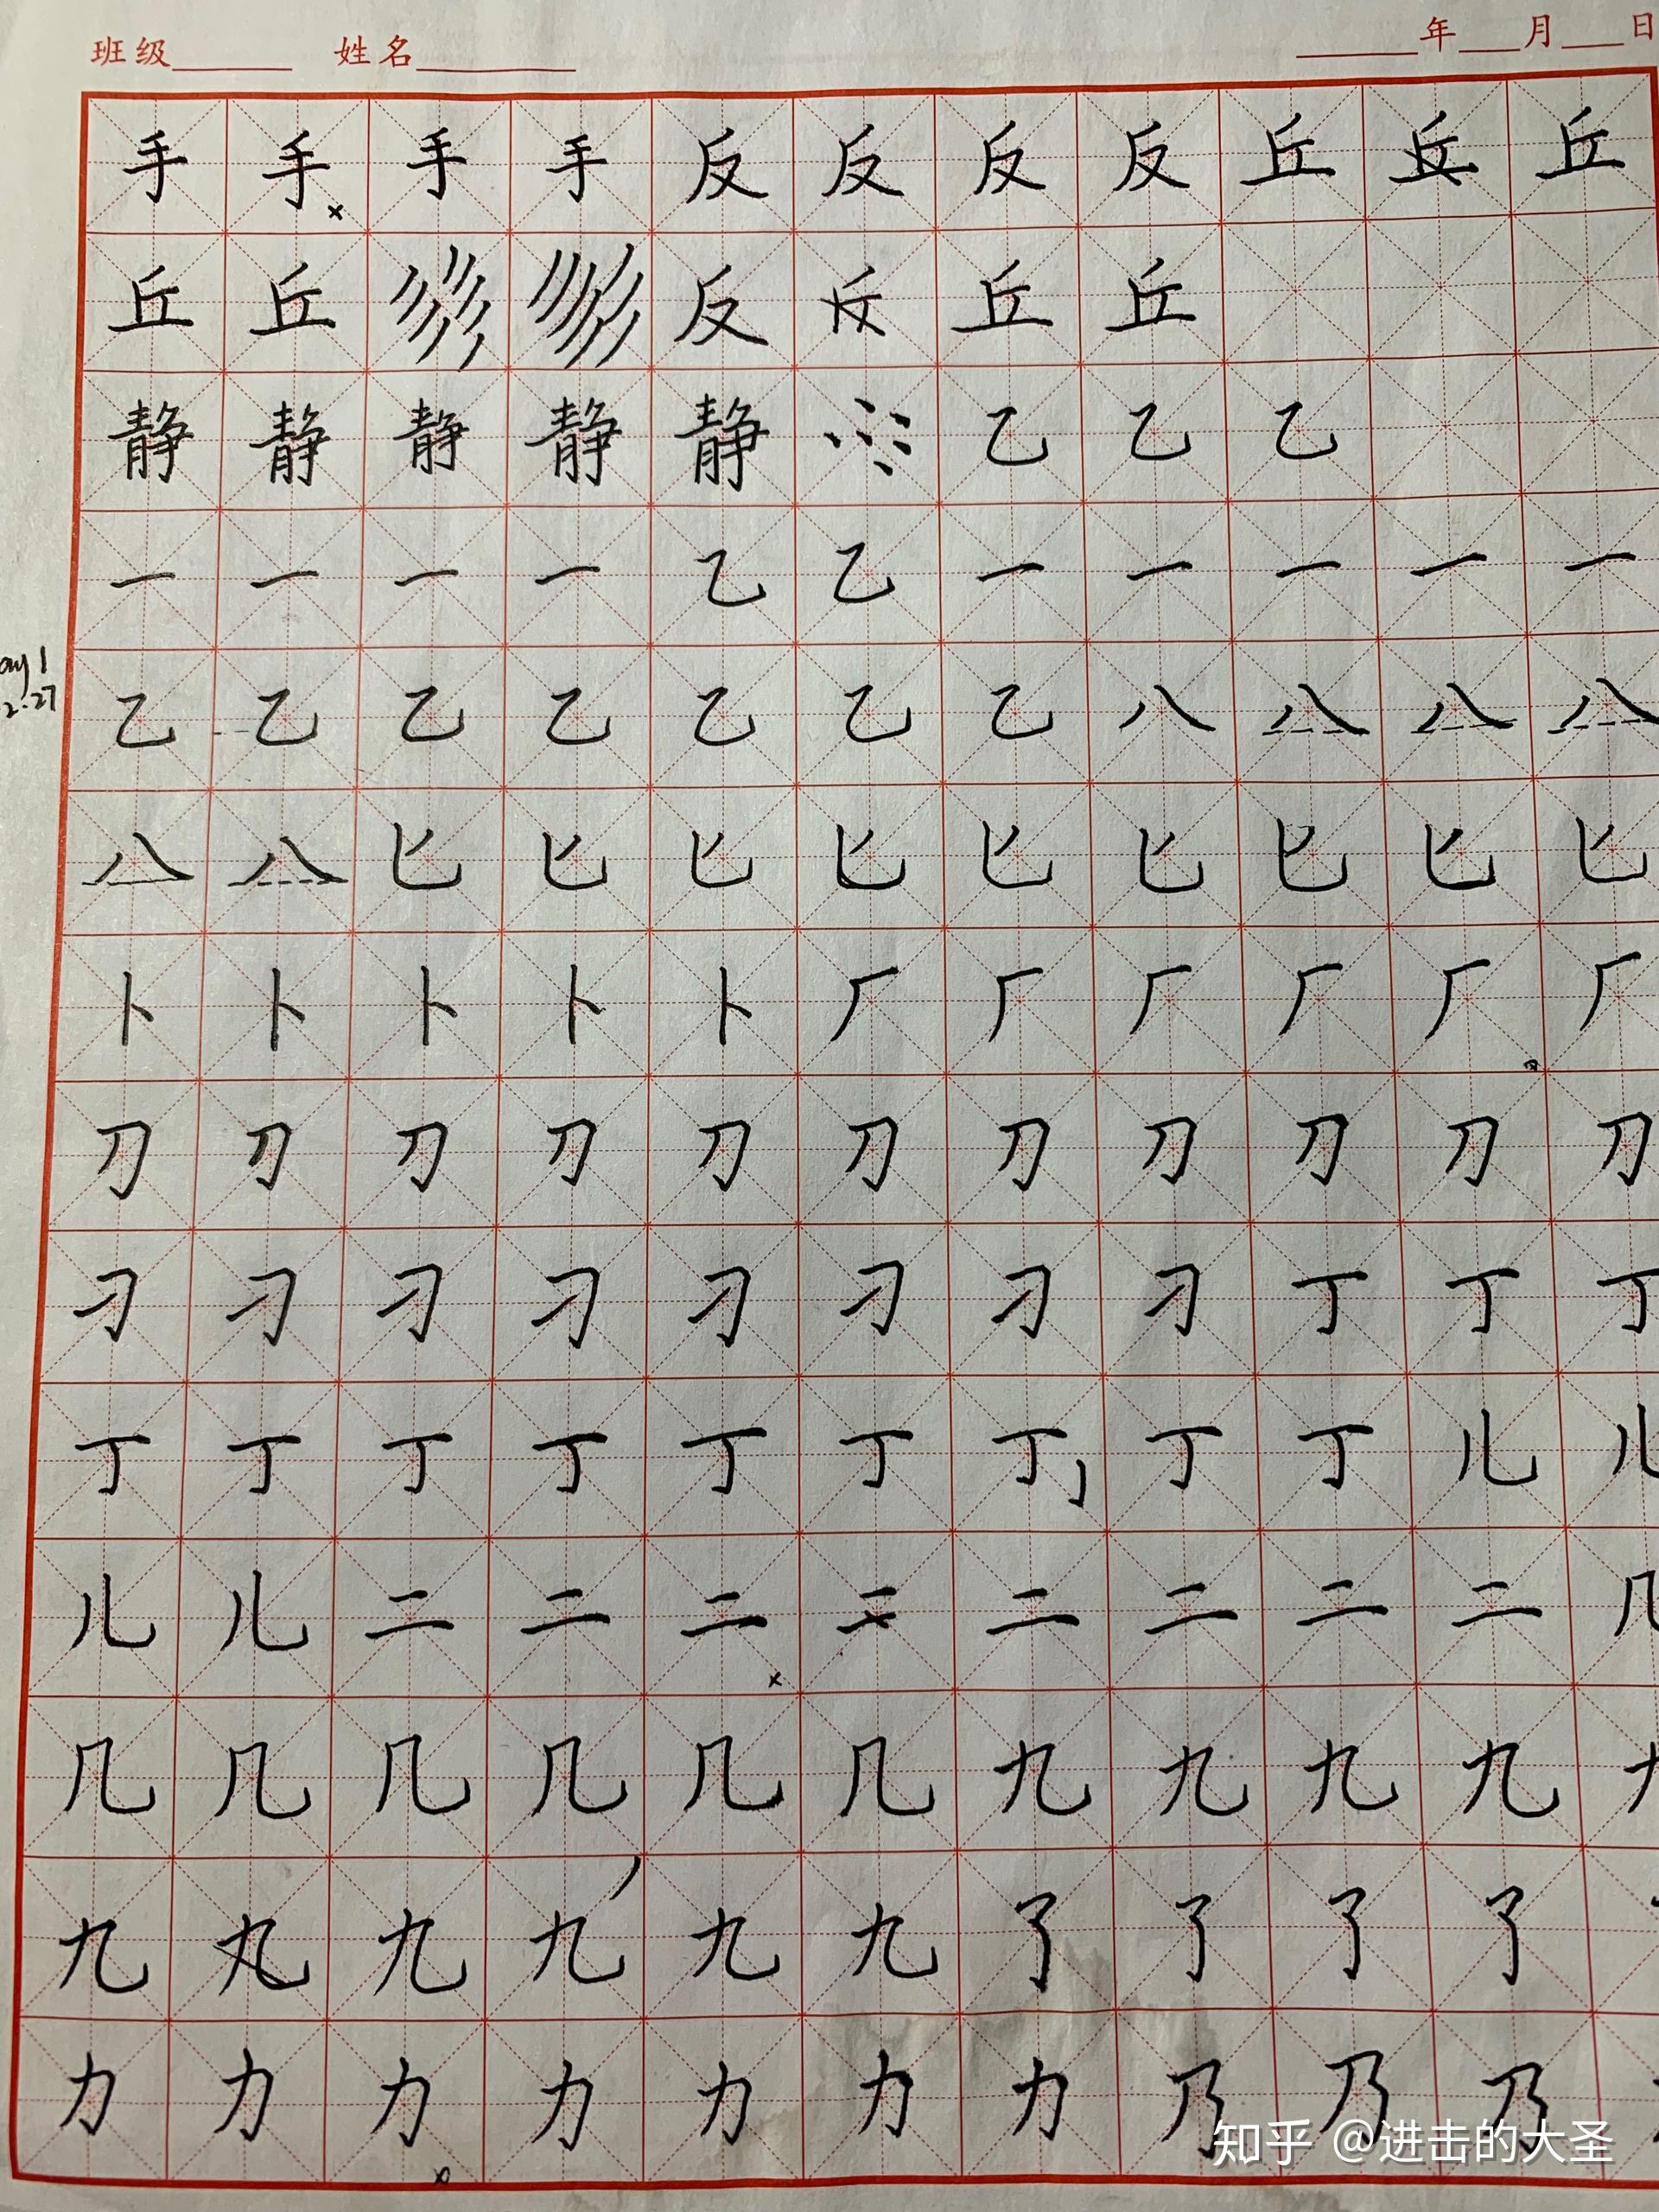 班级 姓名 年 月 日
手 手 手 手 反 反 反 反 丘 丘 丘
丘 丘 反 丘 丘
静 静 静 静 静 乙 乙 乙
一 一 一 一 乙 乙 一 一 一 一 一
乙 乙 乙 乙 乙 乙 乙 八 八 八 八
八 八 匕 匕 匕 匕 匕 匕 匕 匕 匕
卜 卜 卜 卜 卜 厂 厂 厂 厂 厂 厂
刀 刀 刀 刀 刀 刀 刀 刀 刀 刀 刀
刁 刁 刁 刁 刁 刁 刁 刁 丁 丁 丁
丁 丁 丁 丁 丁 丁 丁 丁 丁 儿 儿
儿 儿 二 二 二 二 二 二 二 二 几
几 几 几 几 几 几 九 九 九 九
九 九 九 九 九 九 了 了 了 了
力 力 力 力 力 力 力 乃 乃 乃
ay 1
2.27
知乎 @进击的大圣